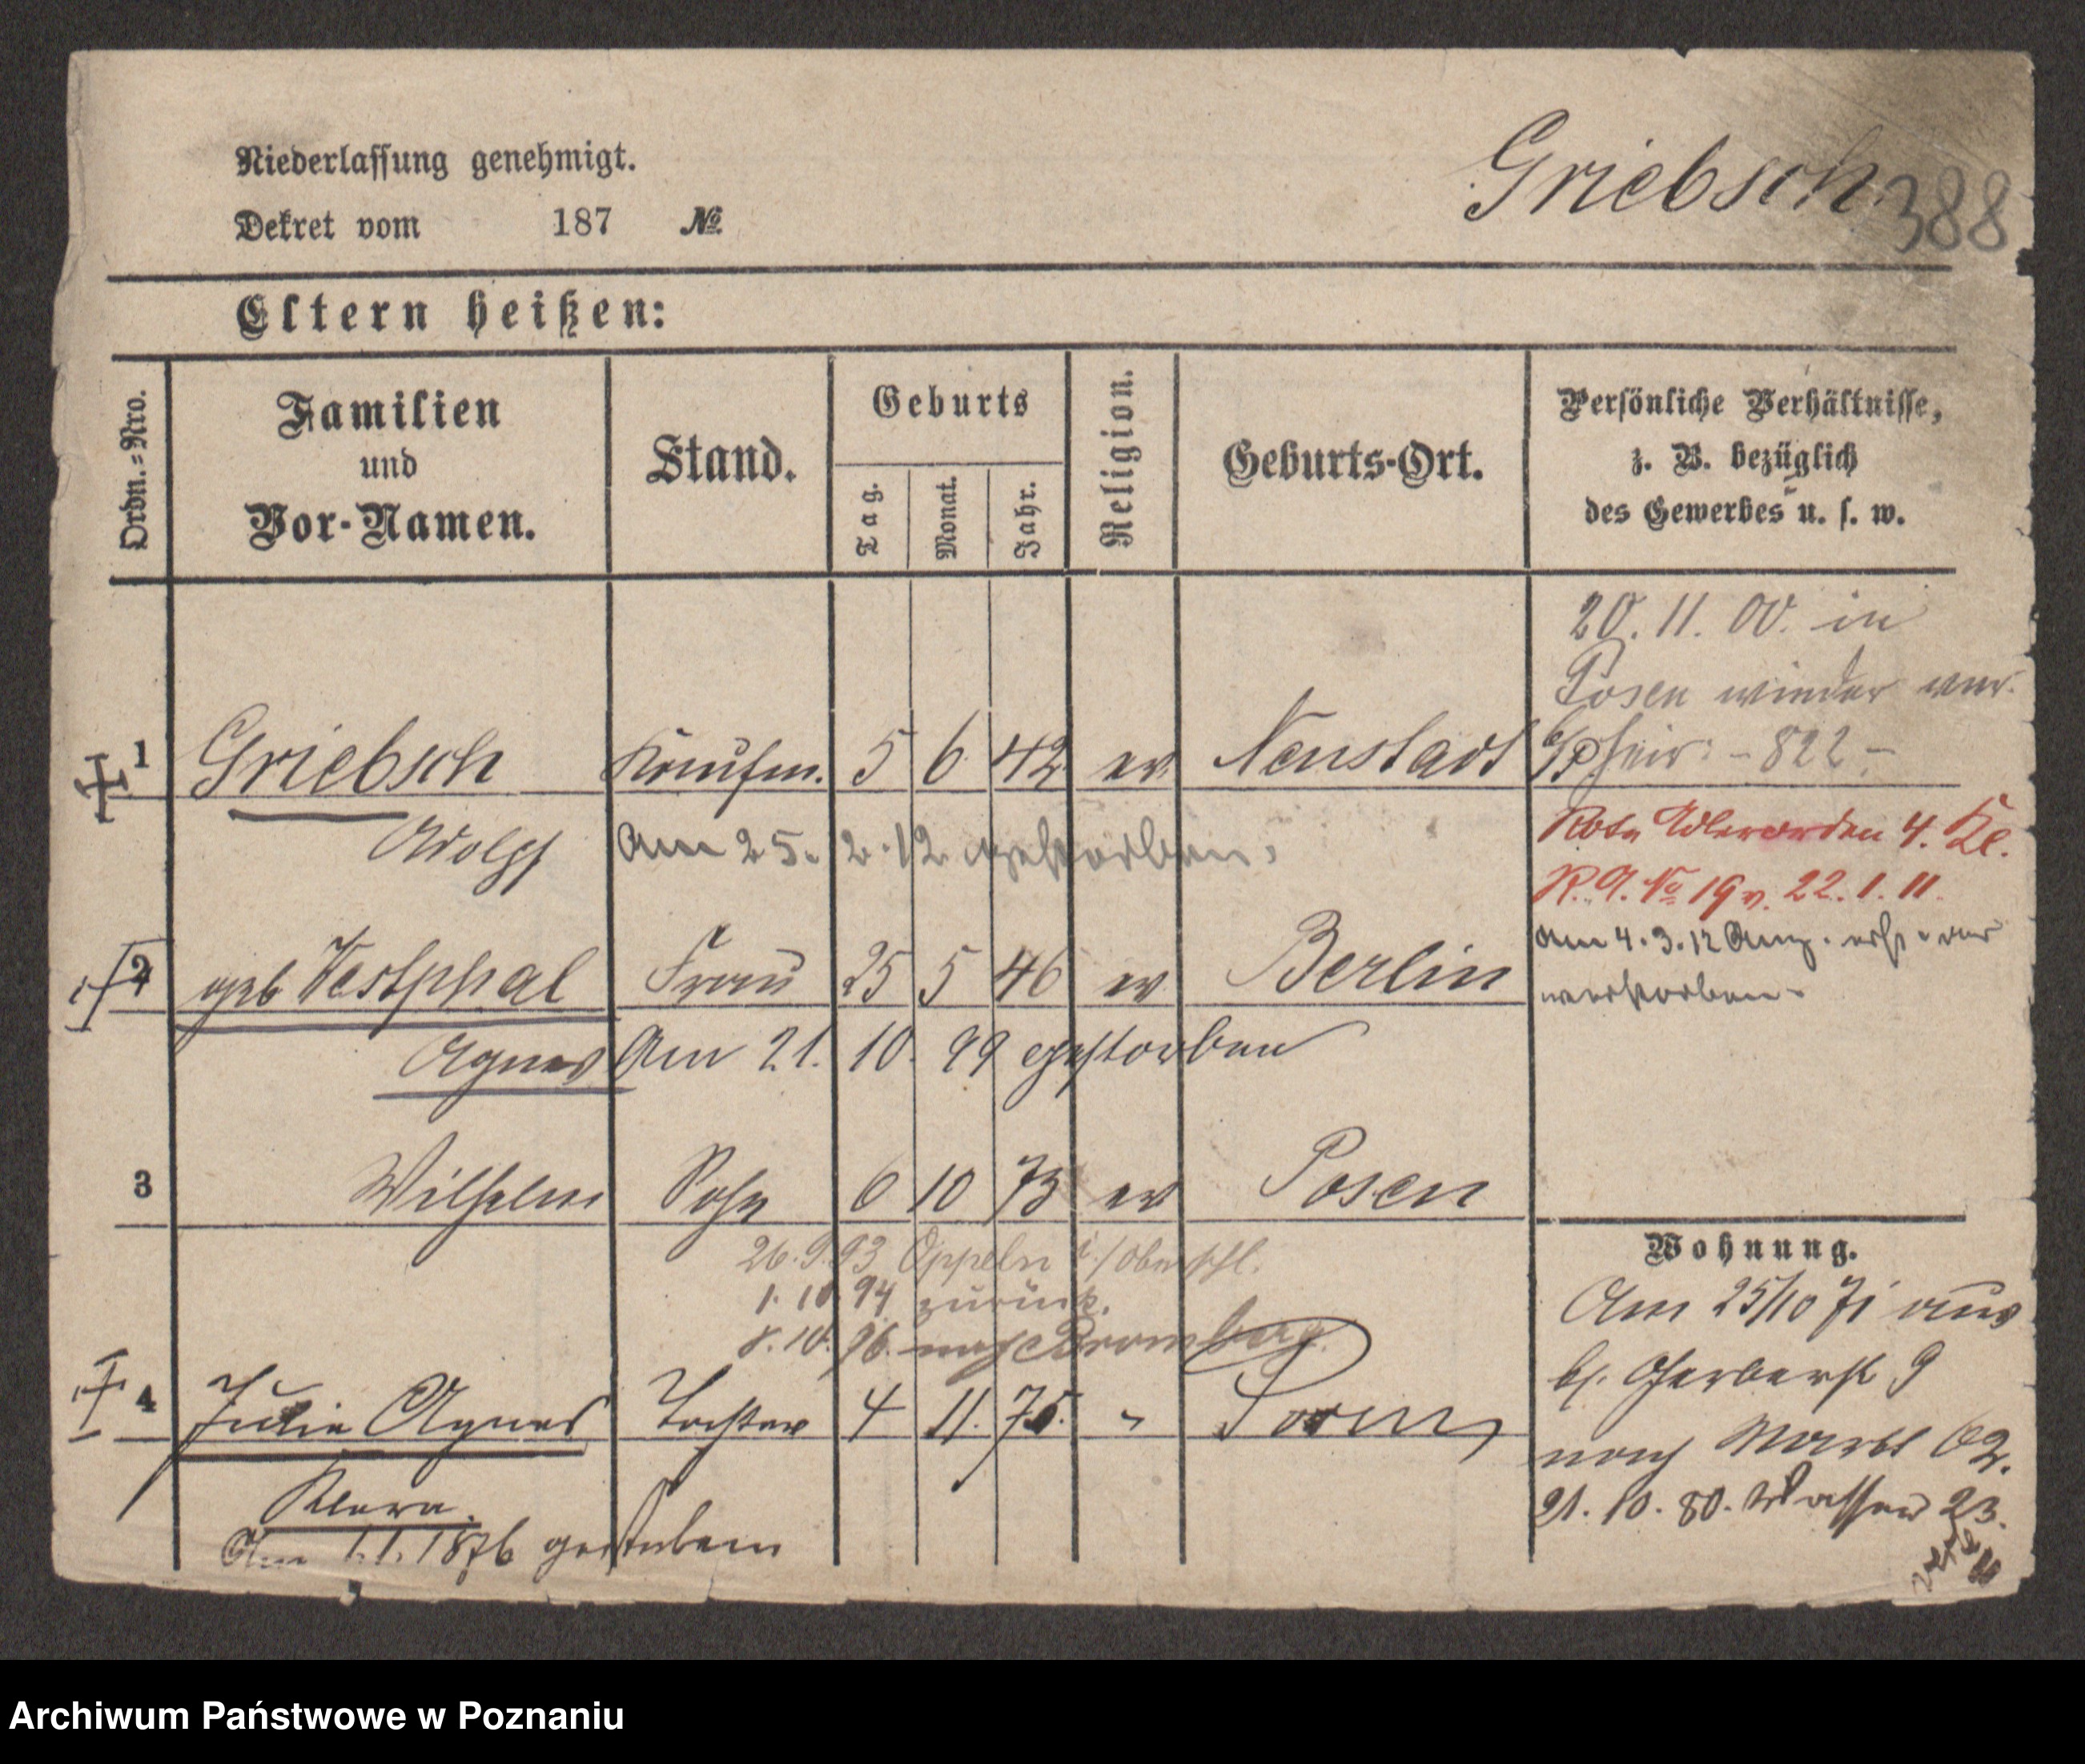 Niederlassung genehmigt.
Griebsch.
388
Dekret vom 187 №
Eltern heißen:
Ordn.-Nro.
Familien
und
Vor-Namen.
Stand.
Geburts
Tag.
Monat.
Jahr.
Religion.
Geburts-Ort.
Persönliche Verhältnisse,
z. B. bezüglich
des Gewerbes u. s. w.
20. 11. 00. in
Posen wieder
1 Griebsch Kaufm. 5 6 42 ev. Neustadt
- 822 -
Adolph Am 25. 2. 12 gestorben.
Rote Adlerorden 4. Kl.
R. A. № 19 v. 22. 1. 11.
am 4. 3. 12
verstorben.
2 geb Westphal Frau 25 5 46 ev Berlin
Agnes Am 21. 10. 99 gestorben
3 Wilhelm Sohn 6 10 73 ev Posen
26. 9. 93 Oppeln i./Oberschl.
1. 10 94 zurück.
8. 10. 96. nach Bromberg
4 Julie Agnes Tochter 4 11. 75. " Posen
Klara.
Am 1. 1. 1876 gestorben
Wohnung.
Am 25/10 71 aus
Gerberst 9
nach Markt 62.
21. 10. 80. Wasser 23.
Archiwum Państwowe w Poznaniu